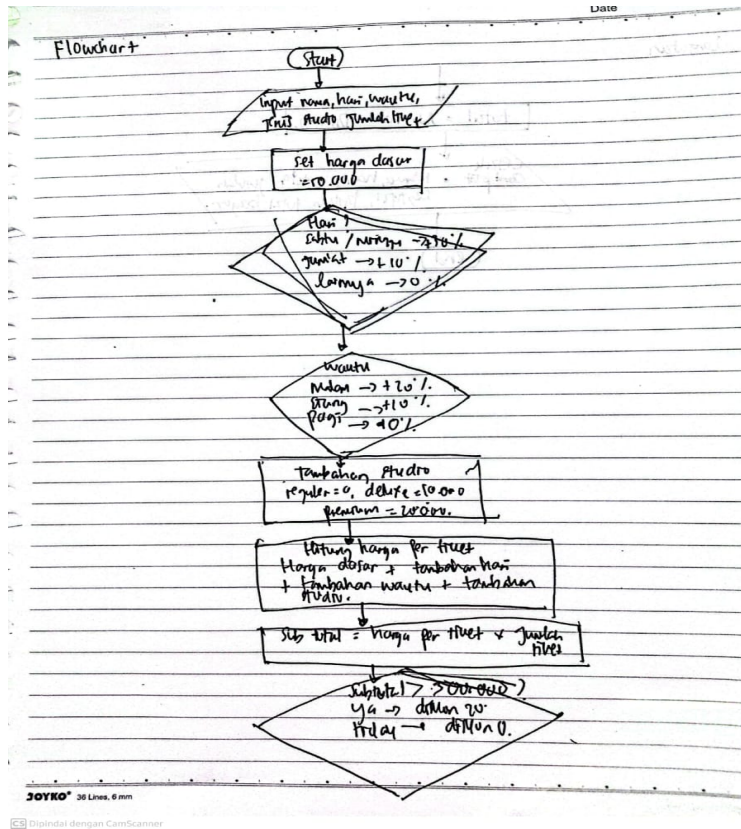 Date
Flowchart
Start
Input nama, hari, waktu,
jenis studio jumlah tiket
set harga dasar
=50.000
Hari?
Sabtu / minggu →+30%
jumat → +10%
lainnya → 0%
waktu
Malam → +20%
Siang → +10%
Pagi → 0%
Tambahan studio
reguler = 0, deluxe = 10.000
premium = 20.000.
Hitung harga per tiket
Harga dasar + tambahan hari
+ tambahan waktu + tambahan
studio.
Sub total = harga per tiket x Jumlah
tiket
Subtotal > 300.000?
ya → diskon 20
tidak → diskon 0.
JOYKO® 36 Lines, 6 mm
CS Dipindai dengan CamScanner